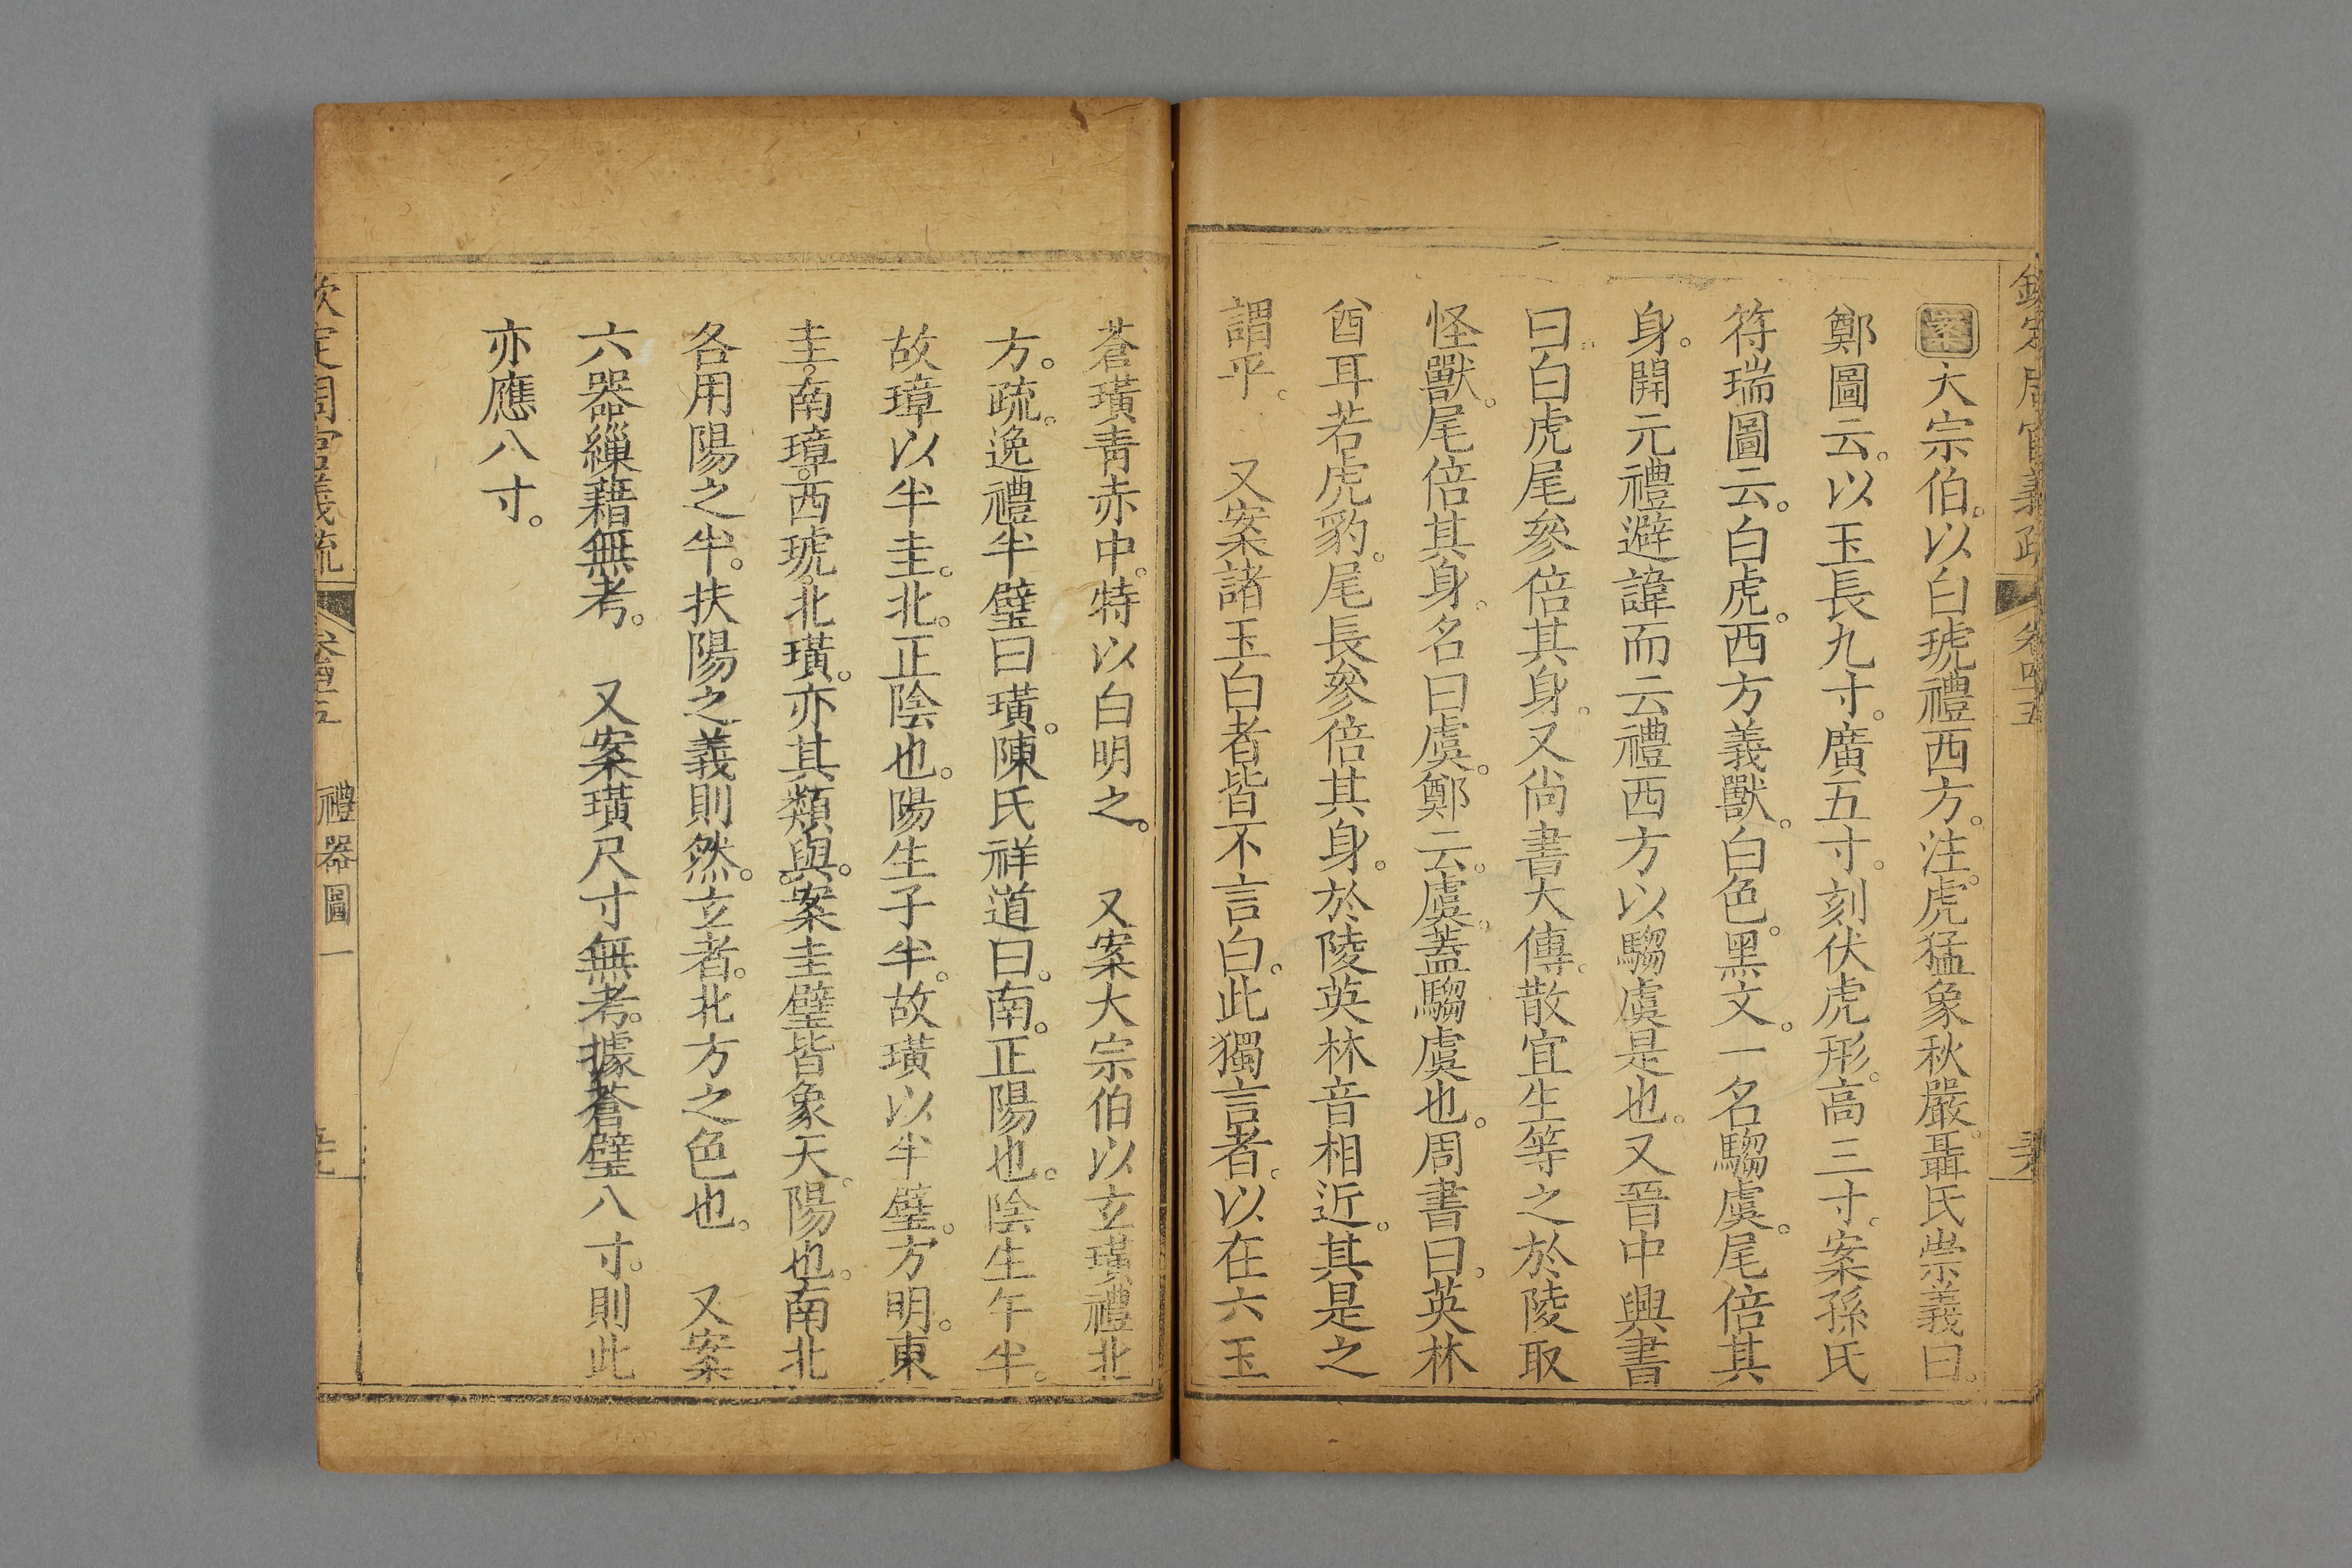 欽定周官義疏 卷四十五
案大宗伯。以白琥禮西方。注。虎猛象秋嚴。聶氏崇義曰。
鄭圖云。以玉長九寸。廣五寸。刻伏虎形。高三寸。案孫氏
符瑞圖云。白虎。西方義獸。白色。黑文。一名騶虞。尾倍其
身。開元禮避諱而云禮西方以騶虞是也。又晉中興書
曰。白虎尾參倍其身。又尚書大傳。散宜生等之於陵取
怪獸。尾倍其身。名曰虞。鄭云。虞。蓋騶虞也。周書曰。英林
酋耳若虎豹。尾長參倍其身。於陵英林音相近。其是之
謂乎。 又案諸玉白者皆不言白。此獨言者。以在六玉
蒼璜青赤中。特以白明之。 又案大宗伯以玄璜禮北
方。疏。逸禮半璧曰璜。陳氏祥道曰。南。正陽也。陰生午半。
故璋以半圭。北。正陰也。陽生子半。故璜以半璧。方明。東
圭。南璋。西琥。北璜。亦其類與。案圭璧皆象天。陽也。南北
各用陽之半。扶陽之義則然。玄者。北方之色也。 又案
六器繅藉無考。 又案璜尺寸無考。據蒼璧八寸。則此
亦應八寸。
欽定周官義疏 禮器圖一